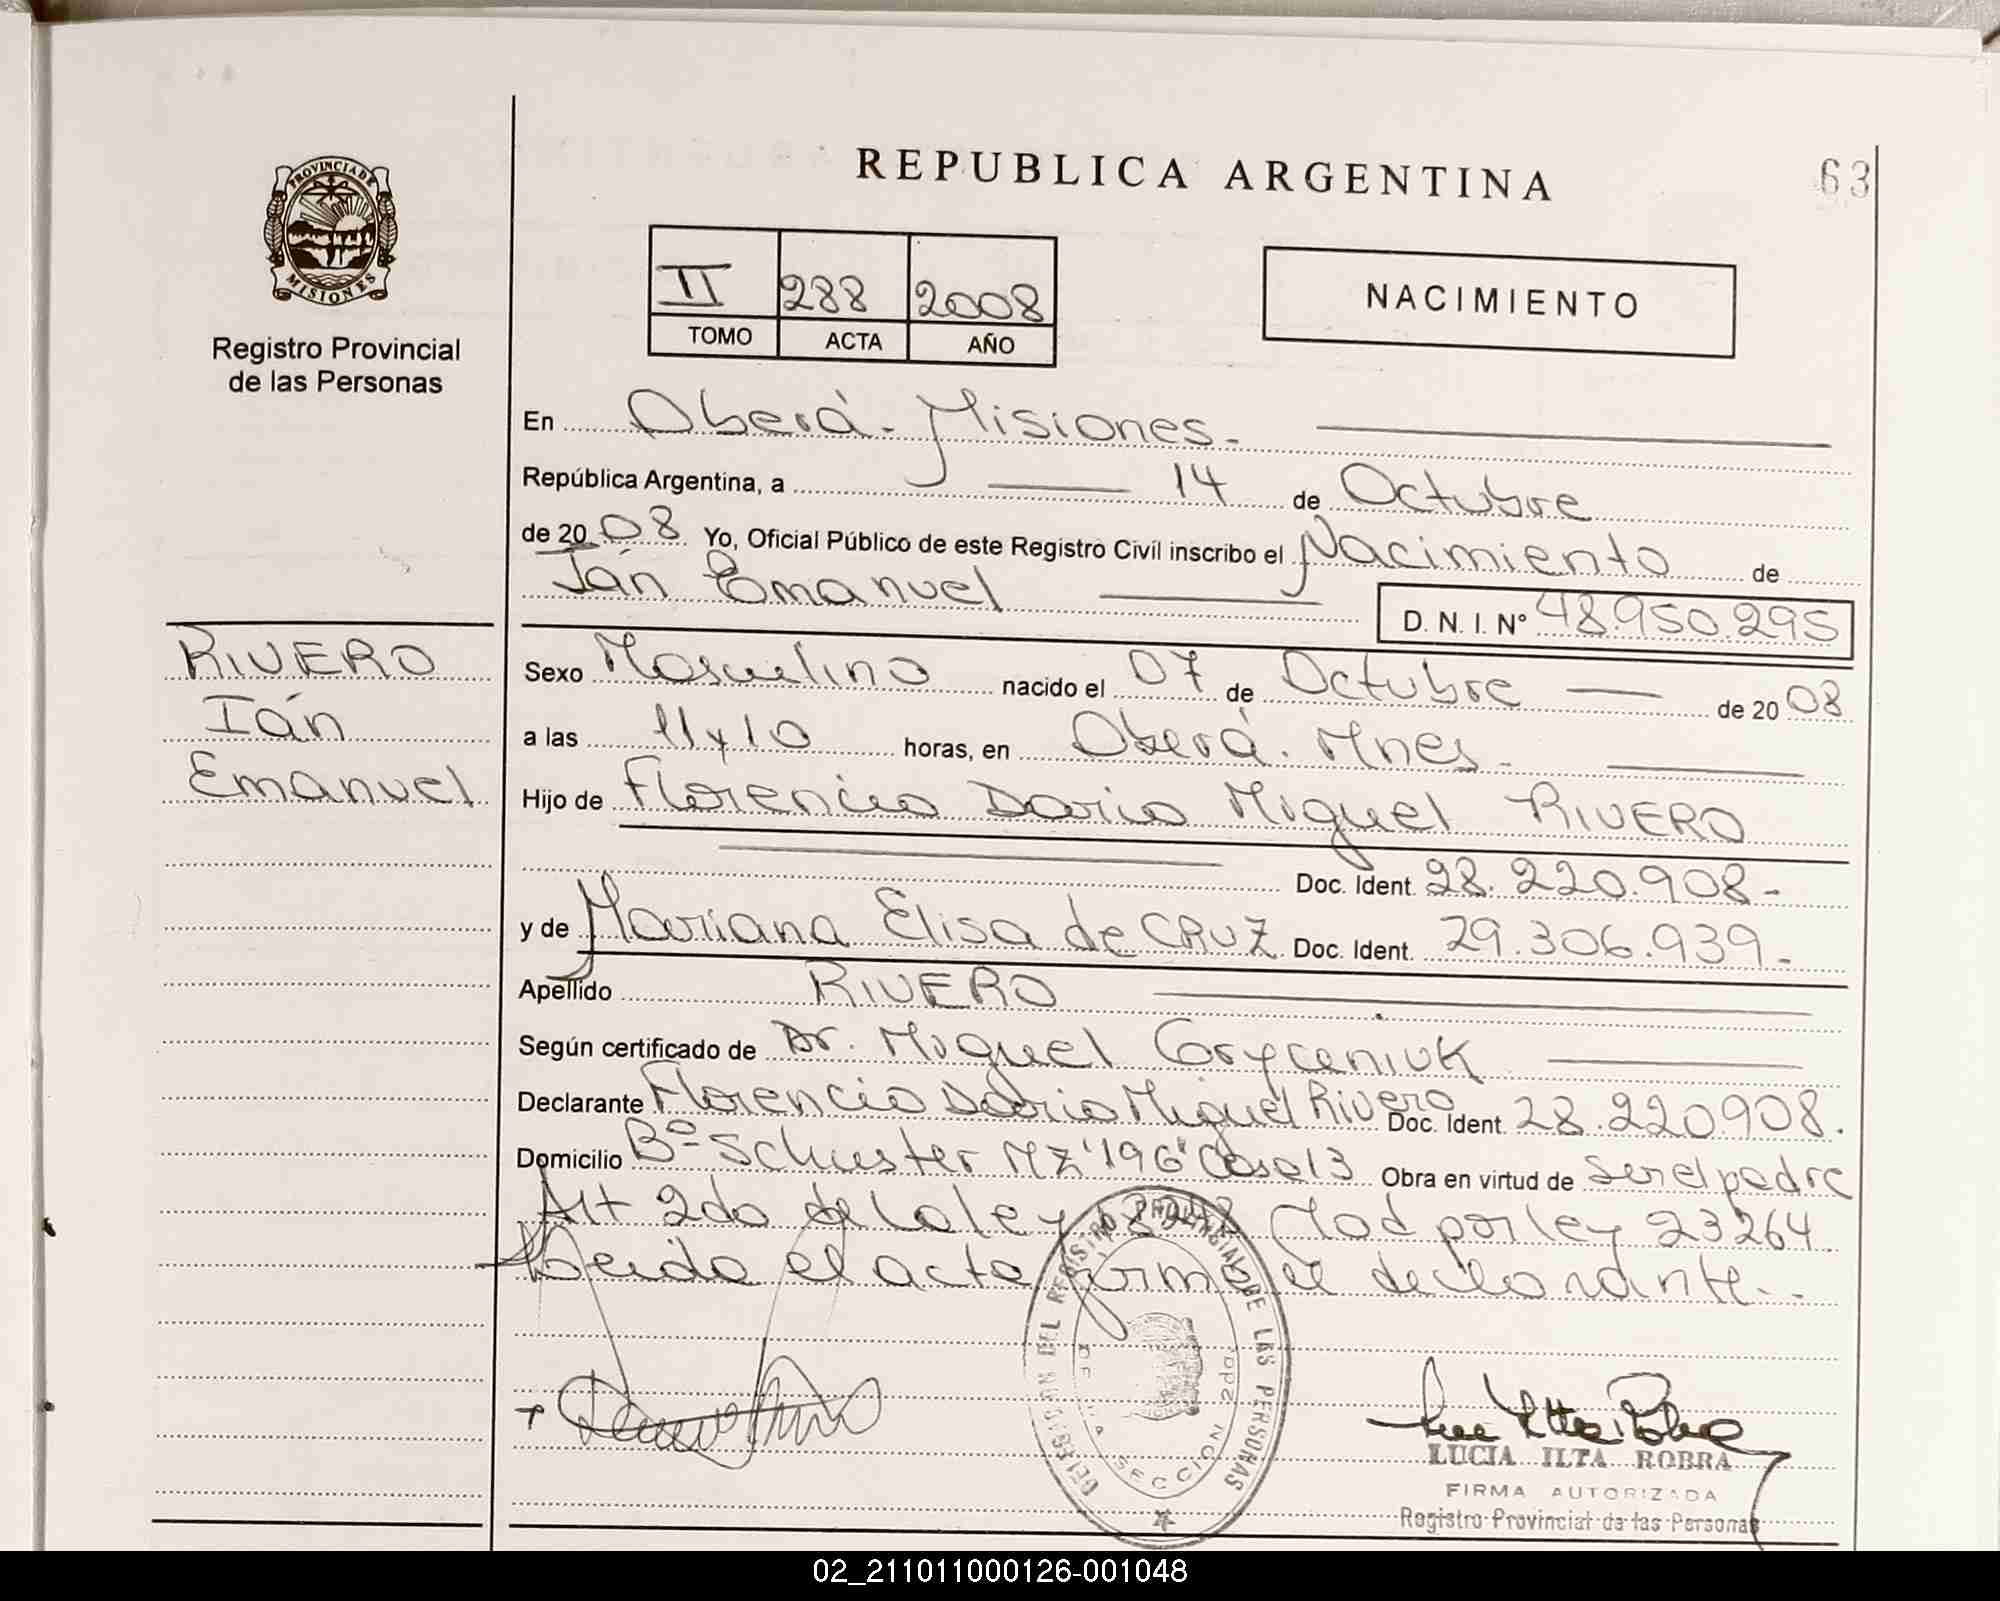 REPUBLICA ARGENTINA
63
PROVINCIA DE
MISIONES
Registro Provincial
de las Personas
II 288 2008
TOMO ACTA AÑO
NACIMIENTO
En Oberá - Misiones -
República Argentina, a 14 de Octubre
de 2008 Yo, Oficial Público de este Registro Civil inscribo el Nacimiento de
Ián Emanuel
D. N. I. Nº 48.950.295
RIVERO
Ián
Emanuel
Sexo Masculino nacido el 07 de Octubre de 2008
a las 11 y 10 horas, en Oberá. Mnes -
Hijo de Florencio Dario Miguel RIVERO
Doc. Ident. 28.220.908-
y de Mariana Elisa de CRUZ Doc. Ident. 29.306.939-
Apellido RIVERO
Según certificado de Dr. Miguel
Declarante Florencio Dario Miguel Rivero Doc. Ident. 28.220908.
Domicilio Bº Schuster Mz "196" Casa 13 Obra en virtud de ser el padre
Art 2do de la ley 18248 Mod por ley 23264
Leida el acta firma el declarante.
DELEGACIÓN DEL REGISTRO PROVINCIAL DE LAS PERSONAS
SECCION
LUCIA ILTA ROBRA
FIRMA AUTORIZADA
Registro Provincial de las Personas
02_211011000126-001048